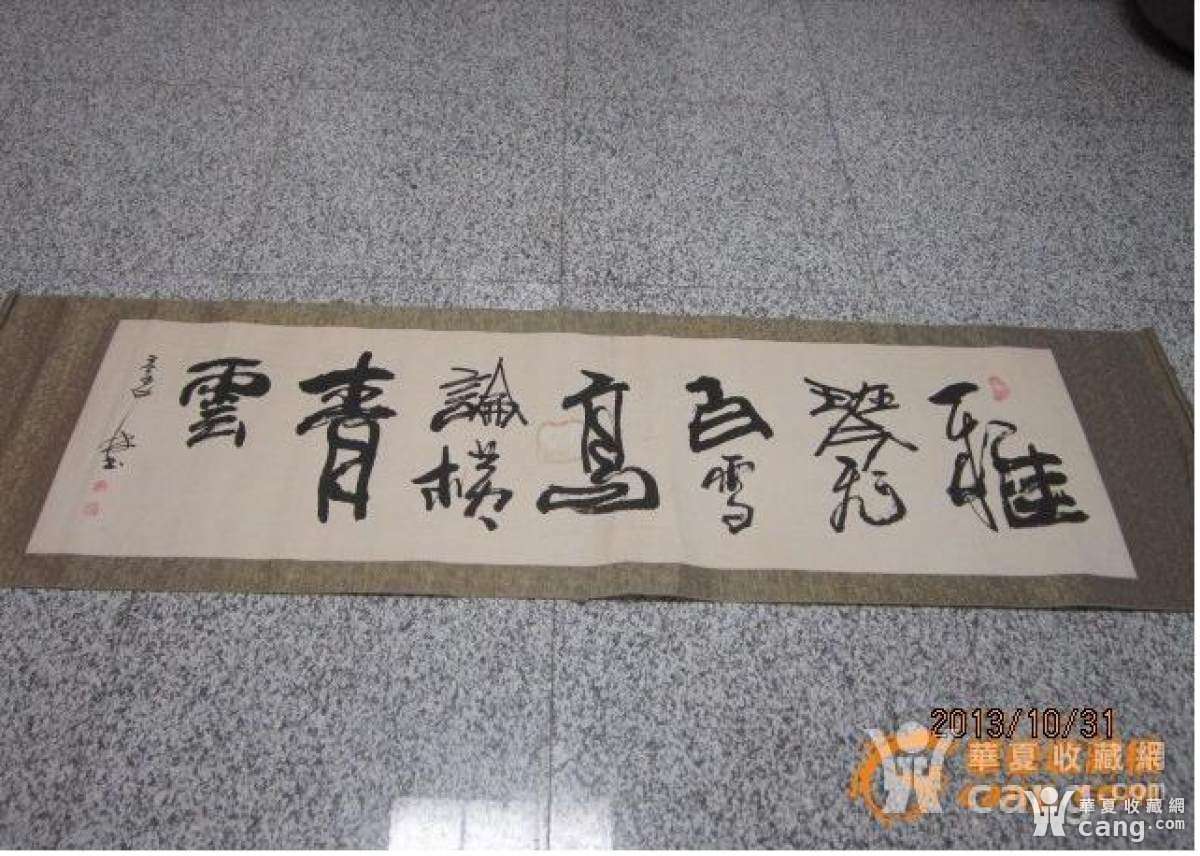 雅
琴飛
白雪
高
論橫
青
雲
2013/10/31
華夏收藏網
cang.com
華夏收藏網
cang.com